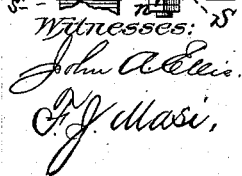 Witnesses:
John A. Ellis.
F. J. Masi,